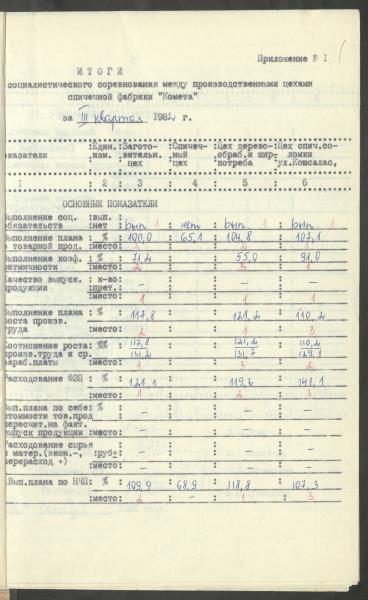 Приложение № I
И Т О Г И
социалистического соревнования между производственными цехами
спичечной фабрики "Комета"
за III квартал 1982 г.
оказатели : Един. изм. : Загото- вительн. цех : Спичеч- ный цех : Цех дерево- обраб.и шир- потреба : Цех спич.со- ломки ул.Консалас,
I : 2 : 3 : 4 : 5 : 6
ОСНОВНЫЕ ПОКАЗАТЕЛИ
Выполнение соц. : вып. :
обязательств : нет : вып. 1 : нет : вып. 1 : вып. 1
Выполнение плана : % : 100,0 : 65,1 : 104,8 : 107,1
о товарной прод. : место:
Выполнение коэф. : % : 71,2 : : 55,0 : 91,0
ритмичности : место: 2 : : 3 : 1
Качество выпуск. : к-во : – : : – : –
продукции : прет.:
: место: 1 : : 1 : 1
Выполнение плана : % : 117,8 : : 121,2 : 110,2
роста произв.
труда : место: 2 : : 1 : 3
Соотношение роста: %% : 117,8 : : 121,2 : 110,2
произв.труда и ср. : 131,2 : : 131,7 : 129,1
зараб.платы : место: 1 : : 3 : 2
Расходование ФЗП : % : 121,1 : : 119,6 : 141,1
: место: 1 : : 2 : 3
Вып.плана по себе: % : – : : – : –
стоимости тов.прод
пересчит.на факт.
выпуск продукции : место: – : : – : –
Расходование сырья
и матер.(экон.-, : руб+ : – : : – : –
перерасход +) : место: – : : – : –
Вып.плана по НЧП: % : 109,9 : 68,9 : 118,8 : 107,3
: место: 2 : – : 1 : 3